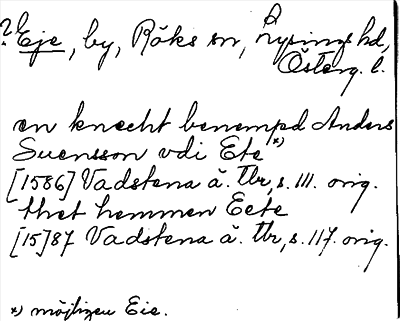 ? Eje, by, Röks sn, Lysings hd,
Österg. l.
en knecht benempd Anders
Suensson vdi Ete *)
[1586] Vadstena ä. Tbr, s. 111. orig.
thet hemmen Eete
[15]87 Vadstena ä. Tbr, s. 117. orig.
*) möjligen Eie.